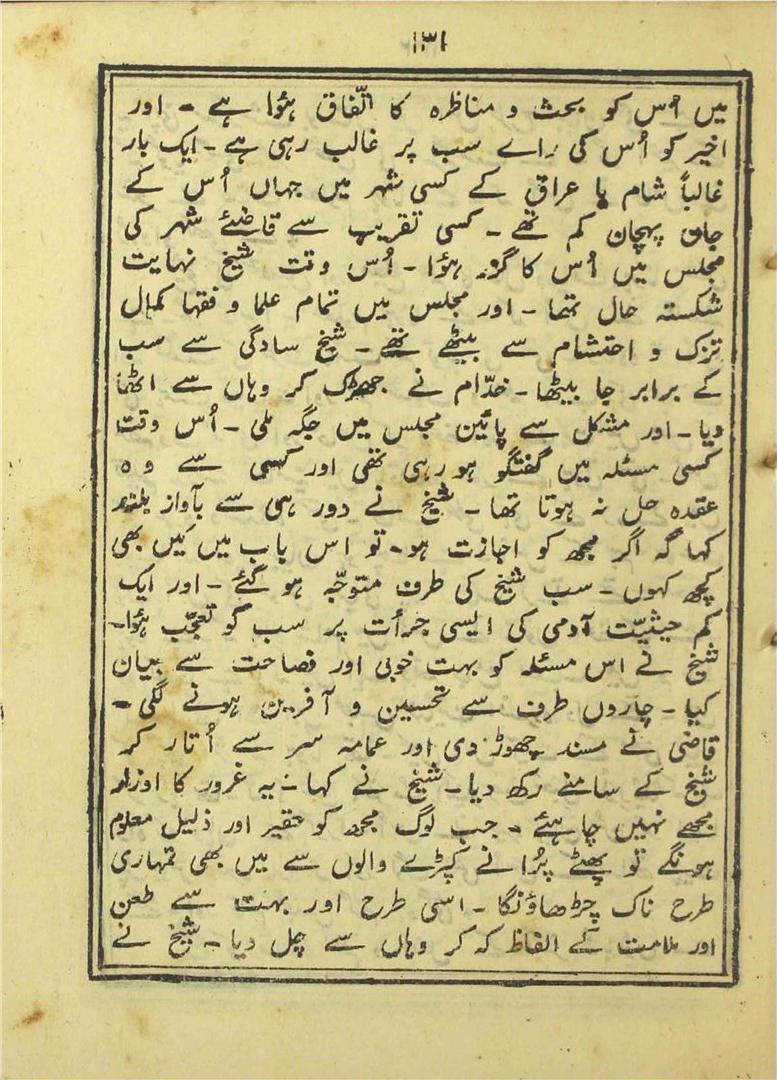 ۱۳۱
میں اُس کو بحث و مناظرہ کا اتّفاق ہؤا ہے - اور
اخیر کو اُس کی راے سب پر غالب رہی ہے - ایک بار
غالباً شام یا عراق کے کسی شہر میں جہاں اُس کے
جان پہچان کم تھے - کسی تقریب سے قاضئے شہر کی
مجلس میں اُس کا گزر ہؤا - اُس وقت شیخ نہایت
شکستہ حال تھا - اور مجلس میں تمام علما و فقہا کمال
تزک و احتشام سے بیٹھے تھے - شیخ سادگی سے سب
کے برابر جا بیٹھا - خدّام نے جھڑک کر وہاں سے اٹھا
دیا - اور مشکل سے پائین مجلس میں جگہ ملی - اُس وقت
کسی مسئلہ میں گفتگو ہو رہی تھی اور کسی سے وہ
عقدہ حل نہ ہوتا تھا - شیخ نے دور ہی سے بآواز بلند
کہا کہ اگر مجھ کو اجازت ہو - تو اس باب میں میں بھی
کچھ کہوں - سب شیخ کی طرف متوجّہ ہو گئے - اور ایک
کم حیثیّت آدمی کی ایسی جرأت پر سب کو تعجّب ہؤا -
شیخ نے اس مسئلہ کو بہت خوبی اور فصاحت سے بیان
کیا - چاروں طرف سے تحسین و آفرین ہونے لگی -
قاضی نے مسند چھوڑ دی اور عمامہ سر سے اُتار کر
شیخ کے سامنے رکھ دیا - شیخ نے کہا - یہ غرور کا اوزار
مجھے نہیں چاہئے - جب لوگ مجھ کو حقیر اور ذلیل معلوم
ہونگے تو پھٹے پُرانے کپڑے والوں سے میں بھی تمہاری
طرح ناک چڑھاؤنگا - اسی طرح اور بہت سے طعن
اور ملامت کے الفاظ کہ کر وہاں سے چل دیا - شیخ نے